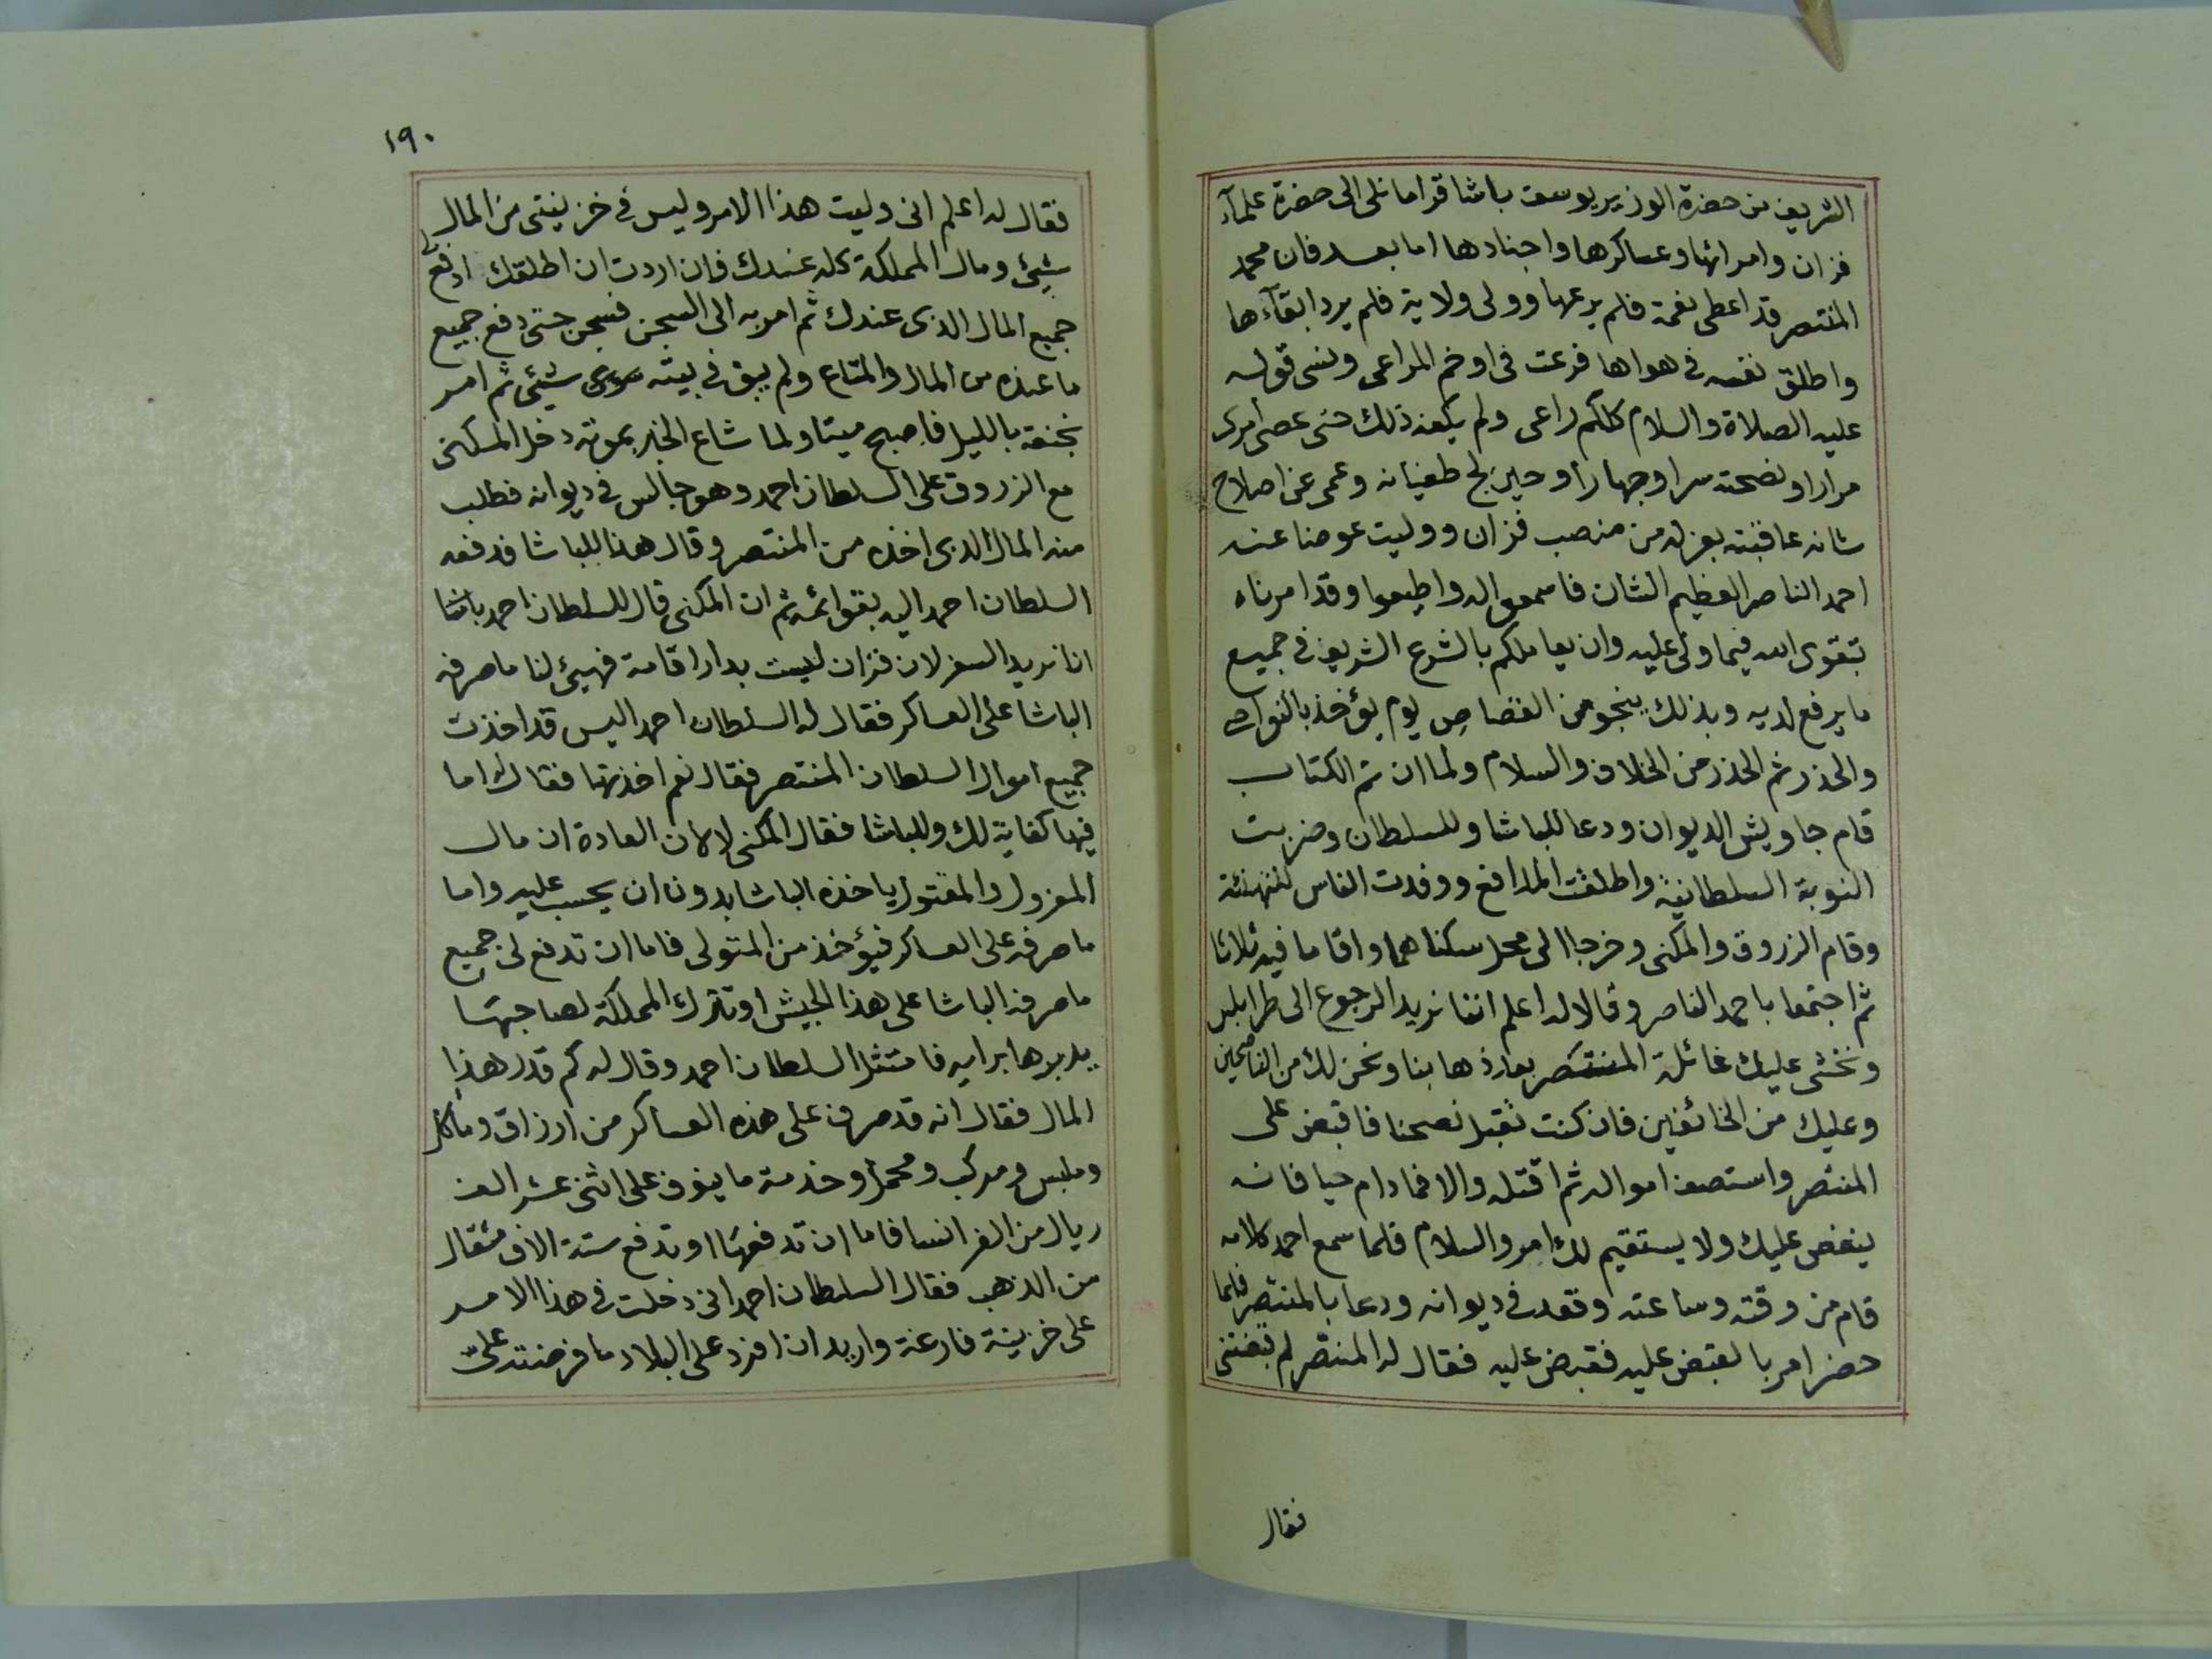 الشريف من حضرة الوزير يوسف باشا قراما نلى الى حضرة علمآء
فزان وامرائها وعساكرها واجنادها اما بعد فان محمد
المنتصر قد اعطى نعمة فلم يرعها وولى ولاية فلم يرد ابقآءها
واطلق نفسه فى هواها فرعت فى اوخم المراعى ونسى قوله
عليه الصلاة والسلام كلكم راعى ولم يكفه ذلك حتى عصى امرى
مرارا ونصحته سرا وجهارا وحين لج طغيانه وعمى عن اصلاح
شانه عاقبته بعزله من منصب فزان ووليت عوضا عنه
احمد الناصر العظيم الشان فاسمعوا له واطيعوا وقد امرناه
بتقوى الله فيما ولى عليه وان يعاملكم بالشرع الشريف فى جميع
ما يرفع لديه وبذلك ينجو من القصاص يوم يؤخذ بالنواصى
والحذر ثم الحذر من الخلاف والسلام ولما ان تم الكتاب
قام جاويش الديوان ودعا للباشا وللسلطان وضربت
النوبة السلطانية واطلقت المدافع ووفدت الناس للتهنئة
وقام الزروق والمكنى وخرجا الى محل سكناهما واقاما فيه ثلاثا
ثم اجتمعا باحمد الناصر وقالا له اعلم اننا نريد الرجوع الى طرابلس
ونخشى عليك غائلة المنتصر بعد ذهابنا ونحن لك من الناصحين
وعليك من الخائفين فان كنت تقبل نصحنا فاقبض على
المنتصر واستصف امواله ثم اقتله والا فمادام حيا فانه
ينغص عليك ولا يستقيم لك امر والسلام فلما سمع احمد كلامه
قام من وقته وساعته وقعد فى ديوانه ودعا بالمنتصر فلما
حضر امر بالقبض عليه فقبض عليه فقال له المنتصر لم تقبضنى
فقال
١٩٠
فقال له اعلم انى وليت هذا الامر وليس فى خزينتى من المال
شيئ ومال المملكة كله عندك فان اردت ان اطلقك ادفع
جميع المال الذى عندك ثم امر به الى السجن فسجن حتى دفع جميع
ما عنده من المال والمتاع ولم يبق فى بيته سوى شيئ ثم امر
بخنقه بالليل فاصبح ميتا ولما شاع الخبر بموته دخل المكنى
مع الزروق على السلطان احمد وهو جالس فى ديوانه فطلب
منه المال الذى اخذه من المنتصر وقال هذا للباشا فدفعه
السلطان احمد اليه بقوائمه ثم ان المكنى قال للسلطان احمد باشا
انا نريد السفر لان فزان ليست بدار اقامة فهيئ لنا ما صرفه
الباشا على العساكر فقال له السلطان احمد اليس قد اخذت
جميع اموال السلطان المنتصر فقال نعم اخذتها فقال له اما
فيها كفاية لك وللباشا فقال المكنى لا لان العادة ان مال
المعزول والمقتول ياخذه الباشا بدون ان يحسب عليه واما
ما صرفه على العساكر فيؤخذ من المتولى فاما ان تدفع لى جميع
ما صرفه الباشا على هذا الجيش او تترك المملكة لصاحبها
يدبرها برايه فامتثل السلطان احمد وقال له كم قدر هذا
المال فقال انه قد صرف على هذه العساكر من ارزاق ومآكل
وملبس ومركب ومحمل وخدمة ما ينوف على اثنى عشر الف
ريال من الفرانسا فاما ان تدفعها او تدفع ستة الاف مثقال
من الذهب فقال السلطان احمد انى دخلت فى هذا الامر
على خزينة فارغة واريد ان افرد على البلاد ما فرضته على